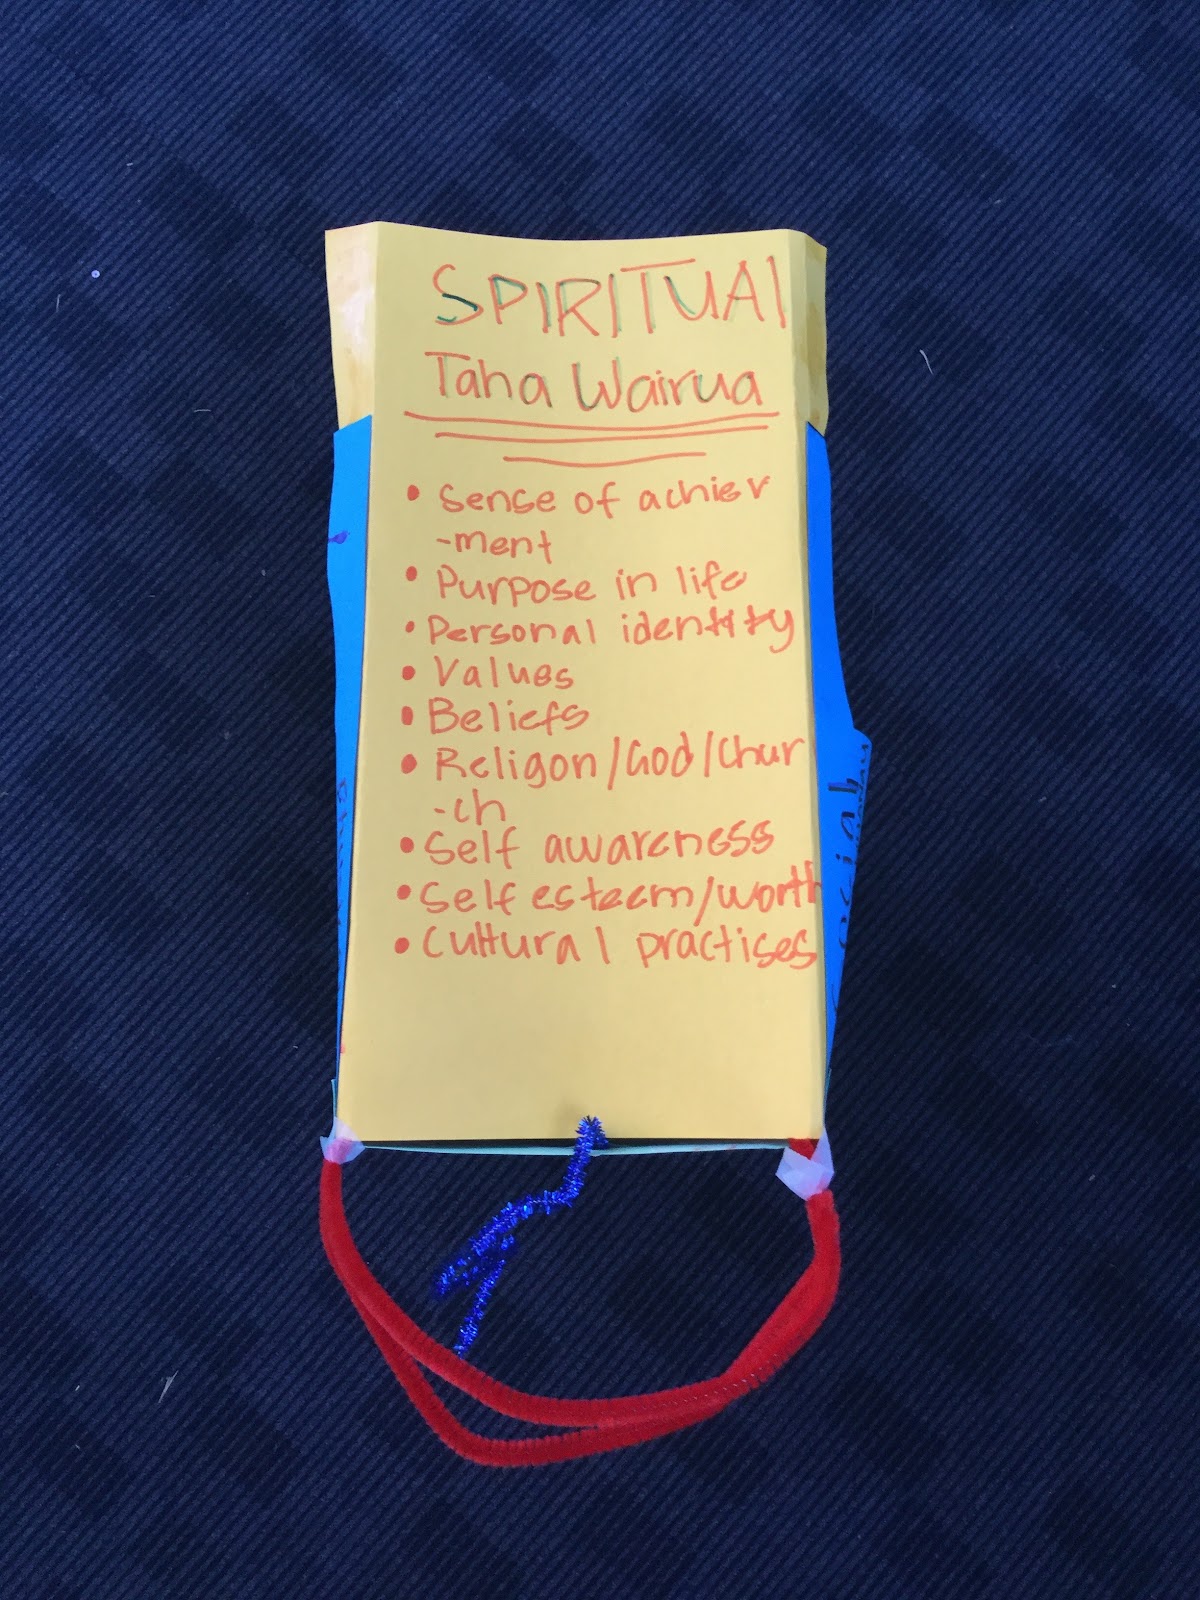 SPIRITUAl
Taha Wairua
• Sense of achiev
-ment
• Purpose in life
• Personal identity
• Values
• Beliefs
• Religon/God/Chur
-ch
• Self awareness
• Self esteem/worth
• Cultural practises